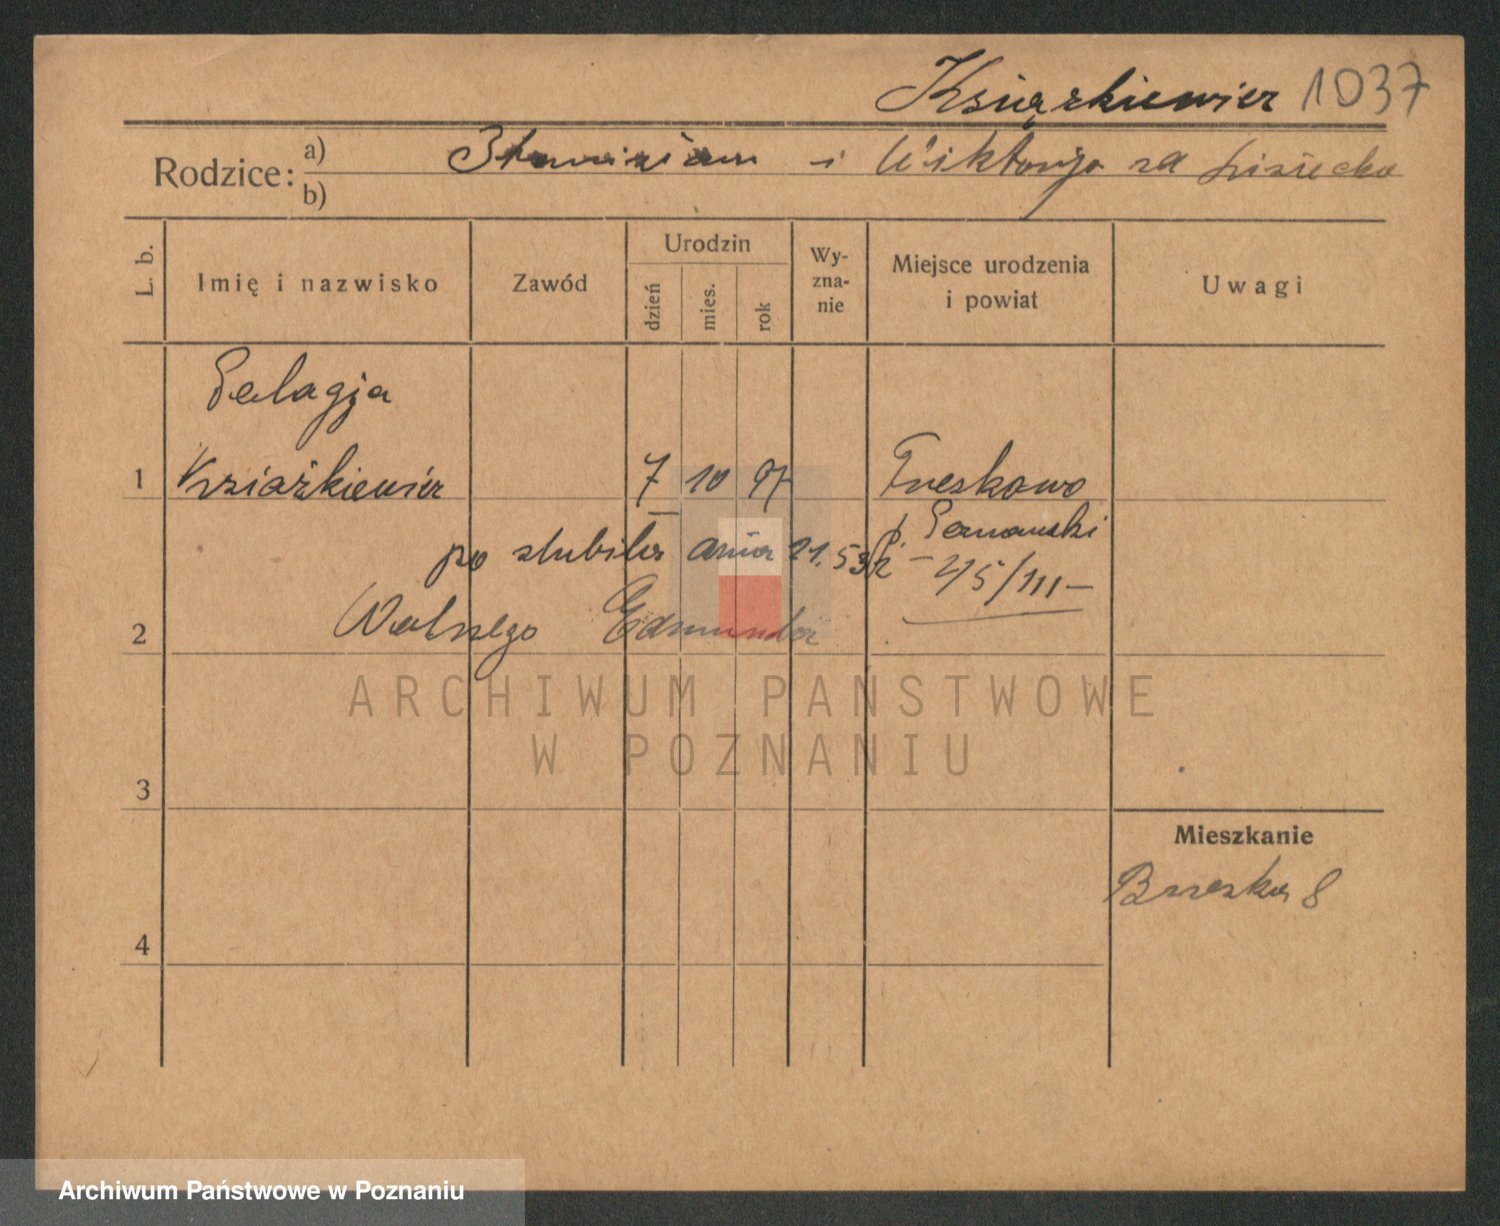 Książkiewicz 1037
Rodzice: a) i Wiktorja za Lisiecka
b)
L. b.
Imię i nazwisko
Zawód
Urodzin
dzień
mies.
rok
Wy-
zna-
nie
Miejsce urodzenia
i powiat
Uwagi
Pelagja
1 Książkiewicz 7 10 97 Treskowo
p. Poznański
poślubiła
2 Edmunda
ARCHIWUM PAŃSTWOWE
W POZNANIU
3
Mieszkanie
8
4
Archiwum Państwowe w Poznaniu